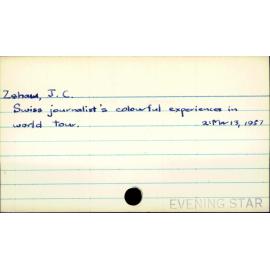 J. C.
Swiss journalist's colourful experiences in
world tour. 2: Mr 13, 1957
EVENING STAR